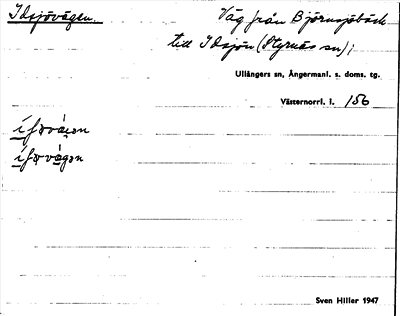 Idsjövägen.
Väg från Björnsjöbäck
till Idsjön (Styrnäs sn);
Ullångers sn, Ångermanl. s. doms. tg.
Västernorrl. l. 156
Sven Hiller 1947